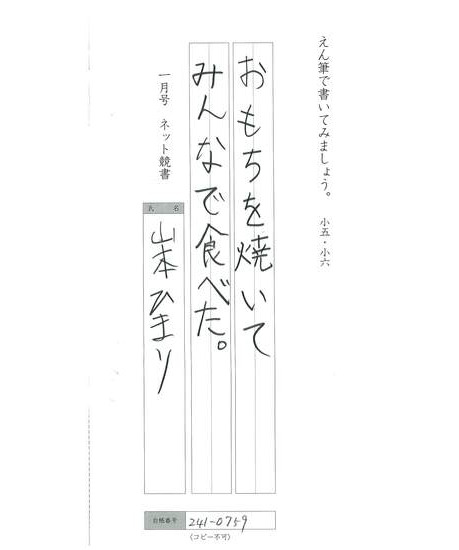 えん筆で書いてみましょう。 小五・小六
おもちを焼いて
みんなで食べた。
一月号 ネット競書
氏 名
山本ひまり
会格番号 241-0759
(コピー不可)